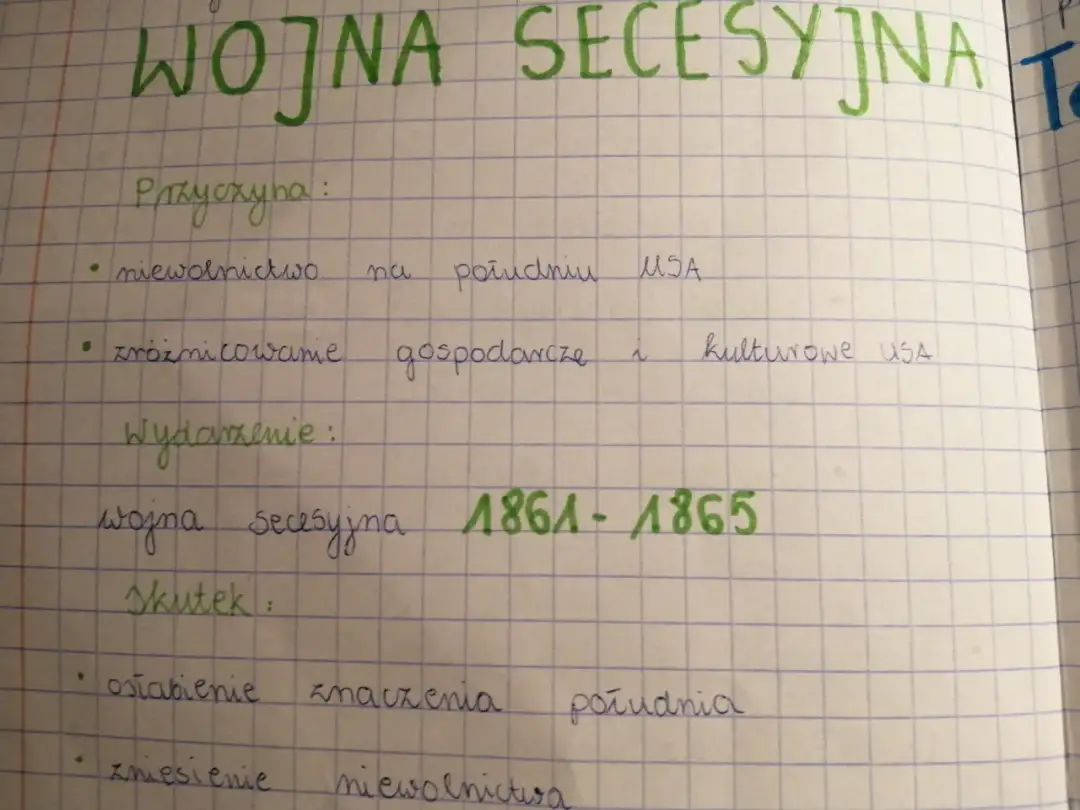 WOJNA SECESYJNA
Przyczyna:
• niewolnictwo na południu USA
• zróżnicowanie gospodarcze i kulturowe USA
Wydarzenie:
wojna secesyjna 1861-1865
Skutek:
• osłabienie znaczenia południa
• zniesienie niewolnictwa